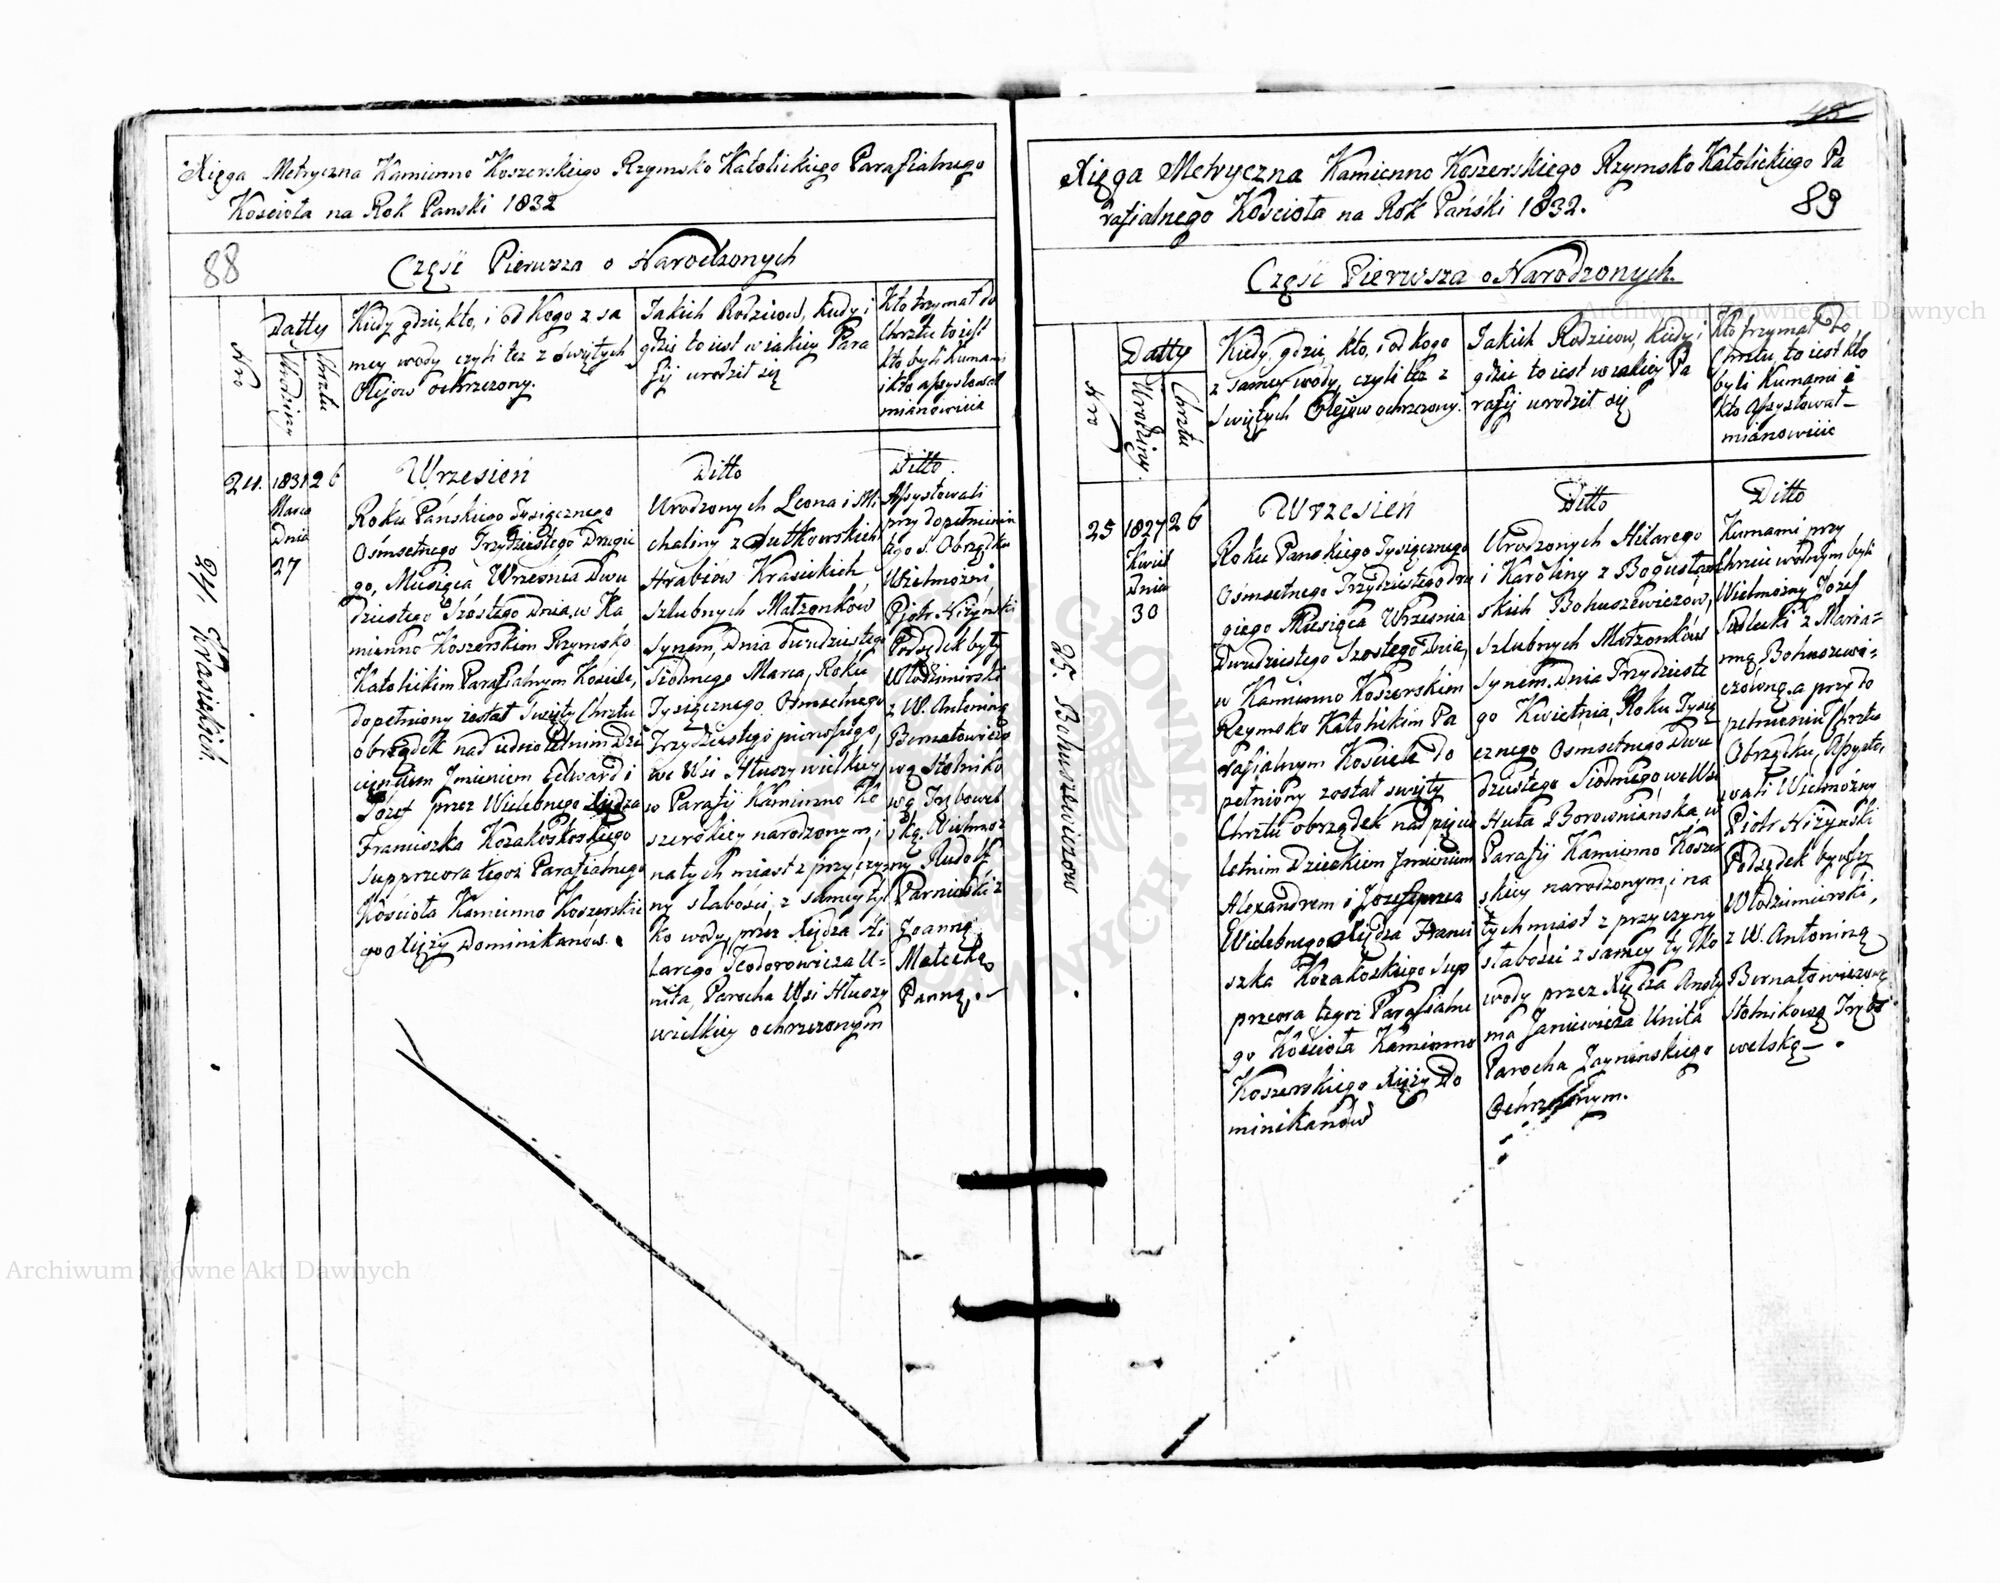 Xięga Metryczna Kamienno Koszerskiego Rzymsko Katolickiego Parafialnego
Kościoła na Rok Panski 1832
88
Część Pierwsza o Narodzonych
Nro
Datty
Urodziny
Chrztu
Kiedy gdzie, kto, i od Kogo z sa
mey wody czyli tez z Swiętych
Olejow ochrzczony.
Jakich Rodzicow, kiedy i
gdzie to iest w iakiey Para
fij urodził się
Kto trzymał do
Chrztu to iest
kto byli Kumami
i kto assystował
mianowicie
24.
1831
Marca
Dnia
27
26
24. Krasickich.
Wrzesień
Roku Pańskiego Tysiącznego
Ośmsetnego Trzydziestego Drugie
go, Miesiąca Wrzesnia Dwu
dziestego Szóstego Dnia, w Ka
mienno Koszerskim Rzymsko
Katolickim Parafialnym Kościele,
dopełniony został Swięty Chrztu
obrządek nad iedno letnim Dzie
cięciem Jmieniem Edward i
Józef przez Wielebnego Xiędza
Franciszka
Supprzeora tegoż Parafialnego
Kościoła Kamienno Koszerskie
go Xięży Dominikanów.
Ditto
Urodzonych Leona i Mi
chaliny z Sutkowskich
Hrabiow Krasickich
Szlubnych Małzonków
Synem, Dnia dwudziestego
Siodmego Marca, Roku
Tysiącznego Osmsetnego
Trzydziestego pierwszego,
we Wsi Hłuszy wielkiey
w Parafij Kamienno Ko
szerskiey narodzonym, i
natych miast z przyczy
ny słabości, z samey tyl
ko wody, przez Xiędza Hi
larego Teodorowicza U=
nita, Parocha Wsi Hłuszy
wielkiey ochrzczonym
Ditto
Assystowali
przy dopełnieniu
tego S. Obrządku
Wielmożni
Piotr Niżyński
Podsędek były
Włodzimirski
z W. Antoniną
Bernatowiczo
wą Stolniko
wą Trębowel
ską. Wielmoż
ny Rudolf
Parnicki z
Joanną
Małecką
Panną.
48
Xięga Metryczna Kamienno Koszerskiego Rzymsko Katolickiego Pa
rafialnego Kościoła na Rok Pański 1832.
89
Część Pierwsza o Narodzonych.
Nro
Datty
Urodziny
Chrztu
Kiedy, gdzie, kto, i od kogo
z samey wody, czyli też z
Swiętych Olejow ochrzczony.
Jakich Rodzicow, kiedy i
gdzie to iest w iakiey Pa
rafij urodził się
Kto trzymał do
Chrztu, to iest kto
byli Kumami i
kto assystował
mianowicie
25
1827
Kwiet
Dnia
30
26
25. Bohuszewiczow
Wrzesień
Roku Panskiego Tysiącznego
Osmsetnego Trzydziestego dru
giego Miesiąca Wrzesnia
Dwudziestego Szostego Dnia,
w Kamienno Koszerskim
Rzymsko Katolickim Pa
rafialnym Kościele do
pełniony został swięty
Chrztu obrządek nad pięcio
letnim Dzieckiem Jmieniem
Alexandrem i Jozef przez
Wielebnego Xiędza Franci
szka Kozakoskiego Sup
przeora tegoż Parafialne
go Kościoła Kamienno
Koszerskiego Xięży Do
minikanów
Ditto
Urodzonych Hilarego
i Karoliny z Bogusław
skich Bohuszewiczow,
Szlubnych Małzonków
Synem. Dnia Trzydzieste
go Kwietnia, Roku Tysią
cznego Osmsetnego Dwu
dziestego Siodmego we Wsi
Huta Borowniańska, w
Parafij Kamienno Koszer
skiey narodzonym, i na
tych miast z przyczyny
słabości z samey tylko
wody przez Xiędza
Janiewicza Unita
Parocha
Ochrzczonym.
Ditto
Kumami przy
Chrzcie wodnym byli
Wielmożny Józef
Siedlecki z Maria=
nną Bohuszewi=
czówną. a przy do
pełnieniu Chrztu
Obrządku, Assysto,
wali Wielmożny
Piotr Niżynski
Podsędek bywszy
Włodzimierski,
z W. Antoniną
Bernatowiczową
Stolnikową Trębo
welską.
Archiwum Główne Akt Dawnych
Archiwum Główne Akt Dawnych